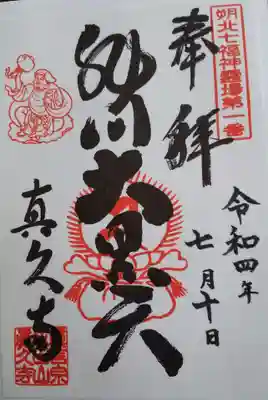 奉拝
朔北七福神靈場第一番
旭川大黒天
令和四年
七月十日
真久寺